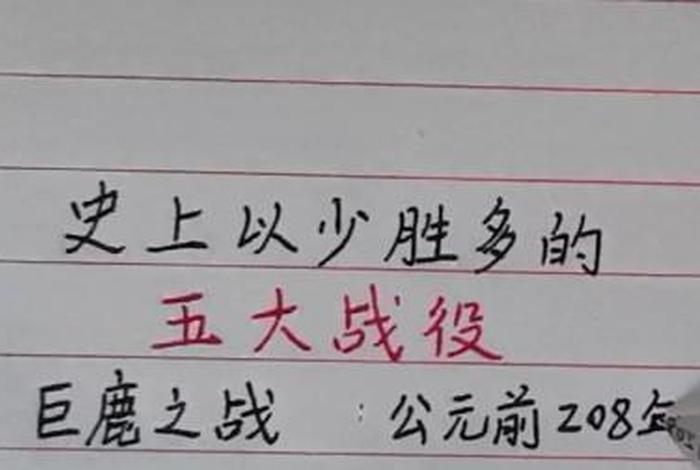 史上以少胜多的
五大战役
巨鹿之战 :公元前208年